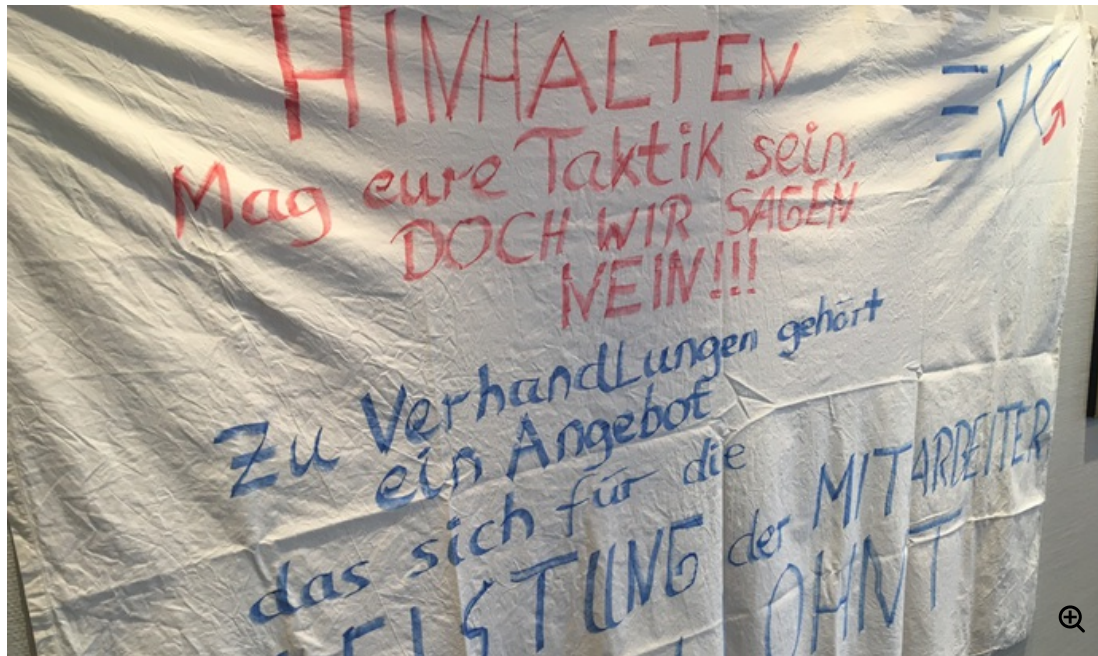 HINHALTEN
EVG
Mag eure Taktik sein,
DOCH WIR SAGEN
NEIN!!!
Zu Verhandlungen gehört
ein Angebot
das sich für die
LEISTUNG der MITARBEITER
LOHNT